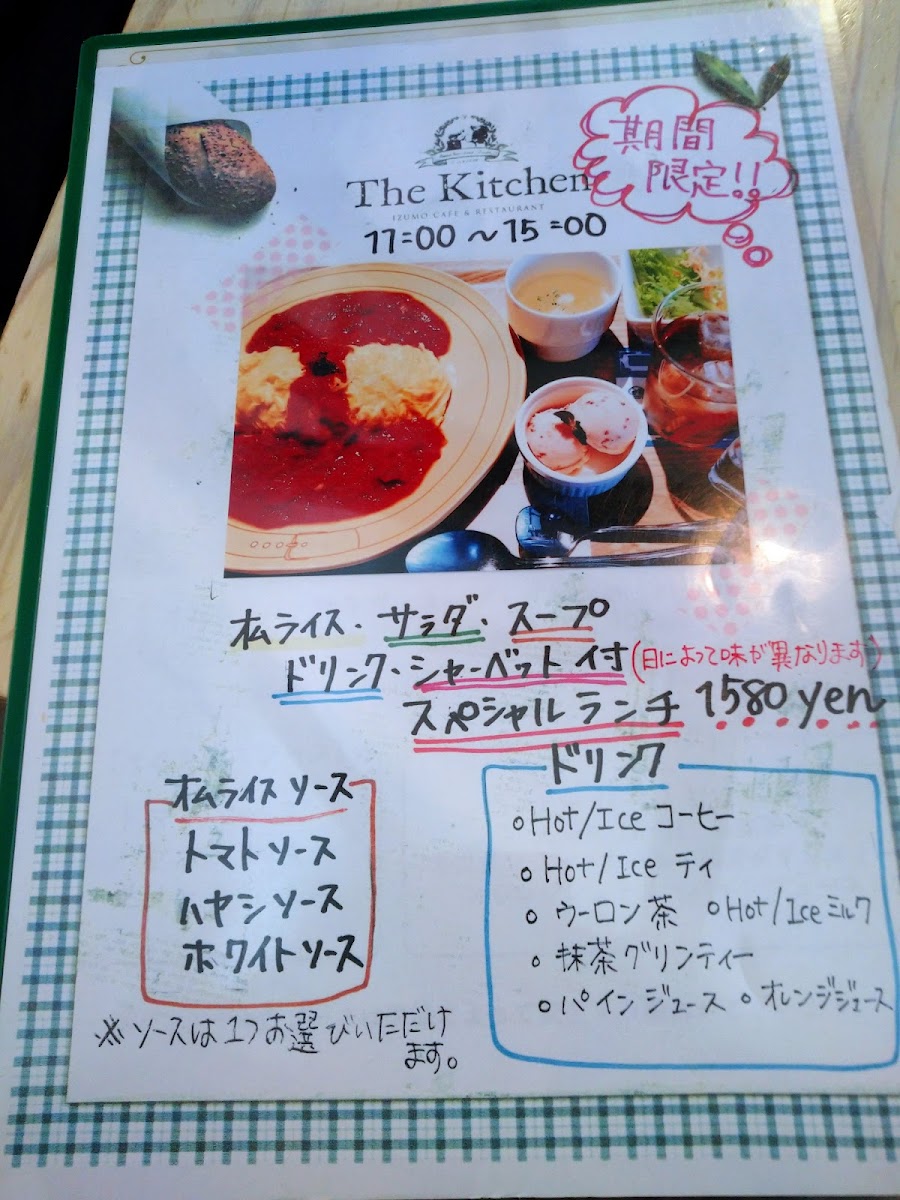 期間
限定!!
The Kitchen
IZUMO CAFE & RESTAURANT
11:00 ~ 15:00
オムライス・サラダ・スープ
ドリンク・シャーベット付(日によって味が異なります)
スペシャルランチ 1580yen
オムライスソース
トマトソース
ハヤシソース
ホワイトソース
※ソースは1つお選びいただけ
ます。
ドリンク
○Hot/Ice コーヒー
○Hot/Ice ティ
○ウーロン茶 ○Hot/Iceミルク
○抹茶グリンティー
○パインジュース ○オレンジジュース